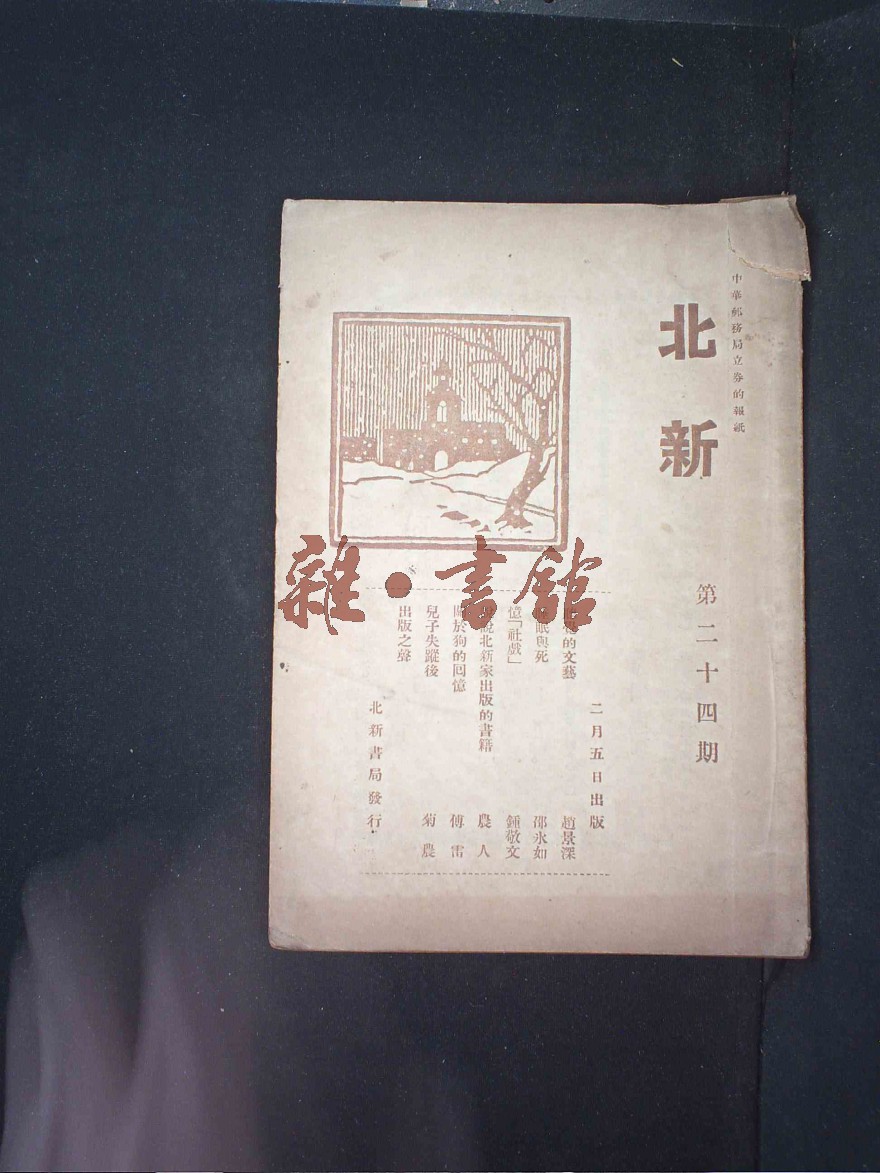 中華郵務局立券的報紙
北新
第二十四期
二月五日出版
的文藝 趙景深
眠與死 邵永如
憶「社戲」 鍾敬文
說北新家出版的書籍 農人
關於狗的回憶 傅雷
兒子失蹤後 菊農
出版之聲
北新書局發行
雜·書館